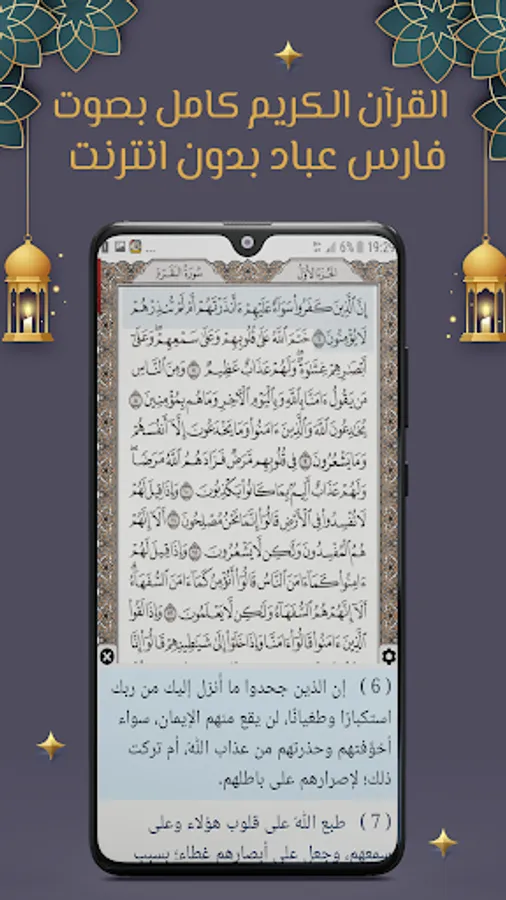 القرآن الكريم كامل بصوت
فارس عباد بدون انترنت
6% 19:29
سورة البقرة الجزء الأول
إِنَّ ٱلَّذِينَ كَفَرُوا۟ سَوَآءٌ عَلَيْهِمْ ءَأَنذَرْتَهُمْ أَمْ لَمْ تُنذِرْهُمْ
لَا يُؤْمِنُونَ ٦ خَتَمَ ٱللَّهُ عَلَىٰ قُلُوبِهِمْ وَعَلَىٰ سَمْعِهِمْ ۖ وَعَلَىٰٓ
أَبْصَٰرِهِمْ غِشَٰوَةٌ ۖ وَلَهُمْ عَذَابٌ عَظِيمٌ ٧ وَمِنَ ٱلنَّاسِ
مَن يَقُولُ ءَامَنَّا بِٱللَّهِ وَبِٱلْيَوْمِ ٱلْءَاخِرِ وَمَا هُم بِمُؤْمِنِينَ ٨
يُخَٰدِعُونَ ٱللَّهَ وَٱلَّذِينَ ءَامَنُوا۟ وَمَا يَخْدَعُونَ إِلَّآ أَنفُسَهُمْ
وَمَا يَشْعُرُونَ ٩ فِى قُلُوبِهِم مَّرَضٌ فَزَادَهُمُ ٱللَّهُ مَرَضًا ۖ
وَلَهُمْ عَذَابٌ أَلِيمٌۢ بِمَا كَانُوا۟ يَكْذِبُونَ ١٠ وَإِذَا قِيلَ لَهُمْ
لَا تُفْسِدُوا۟ فِى ٱلْأَرْضِ قَالُوٓا۟ إِنَّمَا نَحْنُ مُصْلِحُونَ ١١ أَلَآ إِنَّهُمْ
هُمُ ٱلْمُفْسِدُونَ وَلَٰكِن لَّا يَشْعُرُونَ ١٢ وَإِذَا قِيلَ لَهُمْ
ءَامِنُوا۟ كَمَآ ءَامَنَ ٱلنَّاسُ قَالُوٓا۟ أَنُؤْمِنُ كَمَآ ءَامَنَ ٱلسُّفَهَآءُ ۗ
أَلَآ إِنَّهُمْ هُمُ ٱلسُّفَهَآءُ وَلَٰكِن لَّا يَعْلَمُونَ ١٣ وَإِذَا لَقُوا۟
ٱلَّذِينَ ءَامَنُوا۟ قَالُوٓا۟ ءَامَنَّا وَإِذَا خَلَوْا۟ إِلَىٰ شَيَٰطِينِهِمْ قَالُوٓا۟ إِنَّا
(6) إن الذين جحدوا ما أنزل إليك من ربك
استكبارًا وطغيانًا، لن يقع منهم الإيمان، سواء
أخوَّفتهم وحذرتهم من عذاب الله، أم تركت
ذلك؛ لإصرارهم على باطلهم.
(7) طبع الله على قلوب هؤلاء وعلى
سمعهم، وجعل على أبصارهم غطاء؛ بسبب